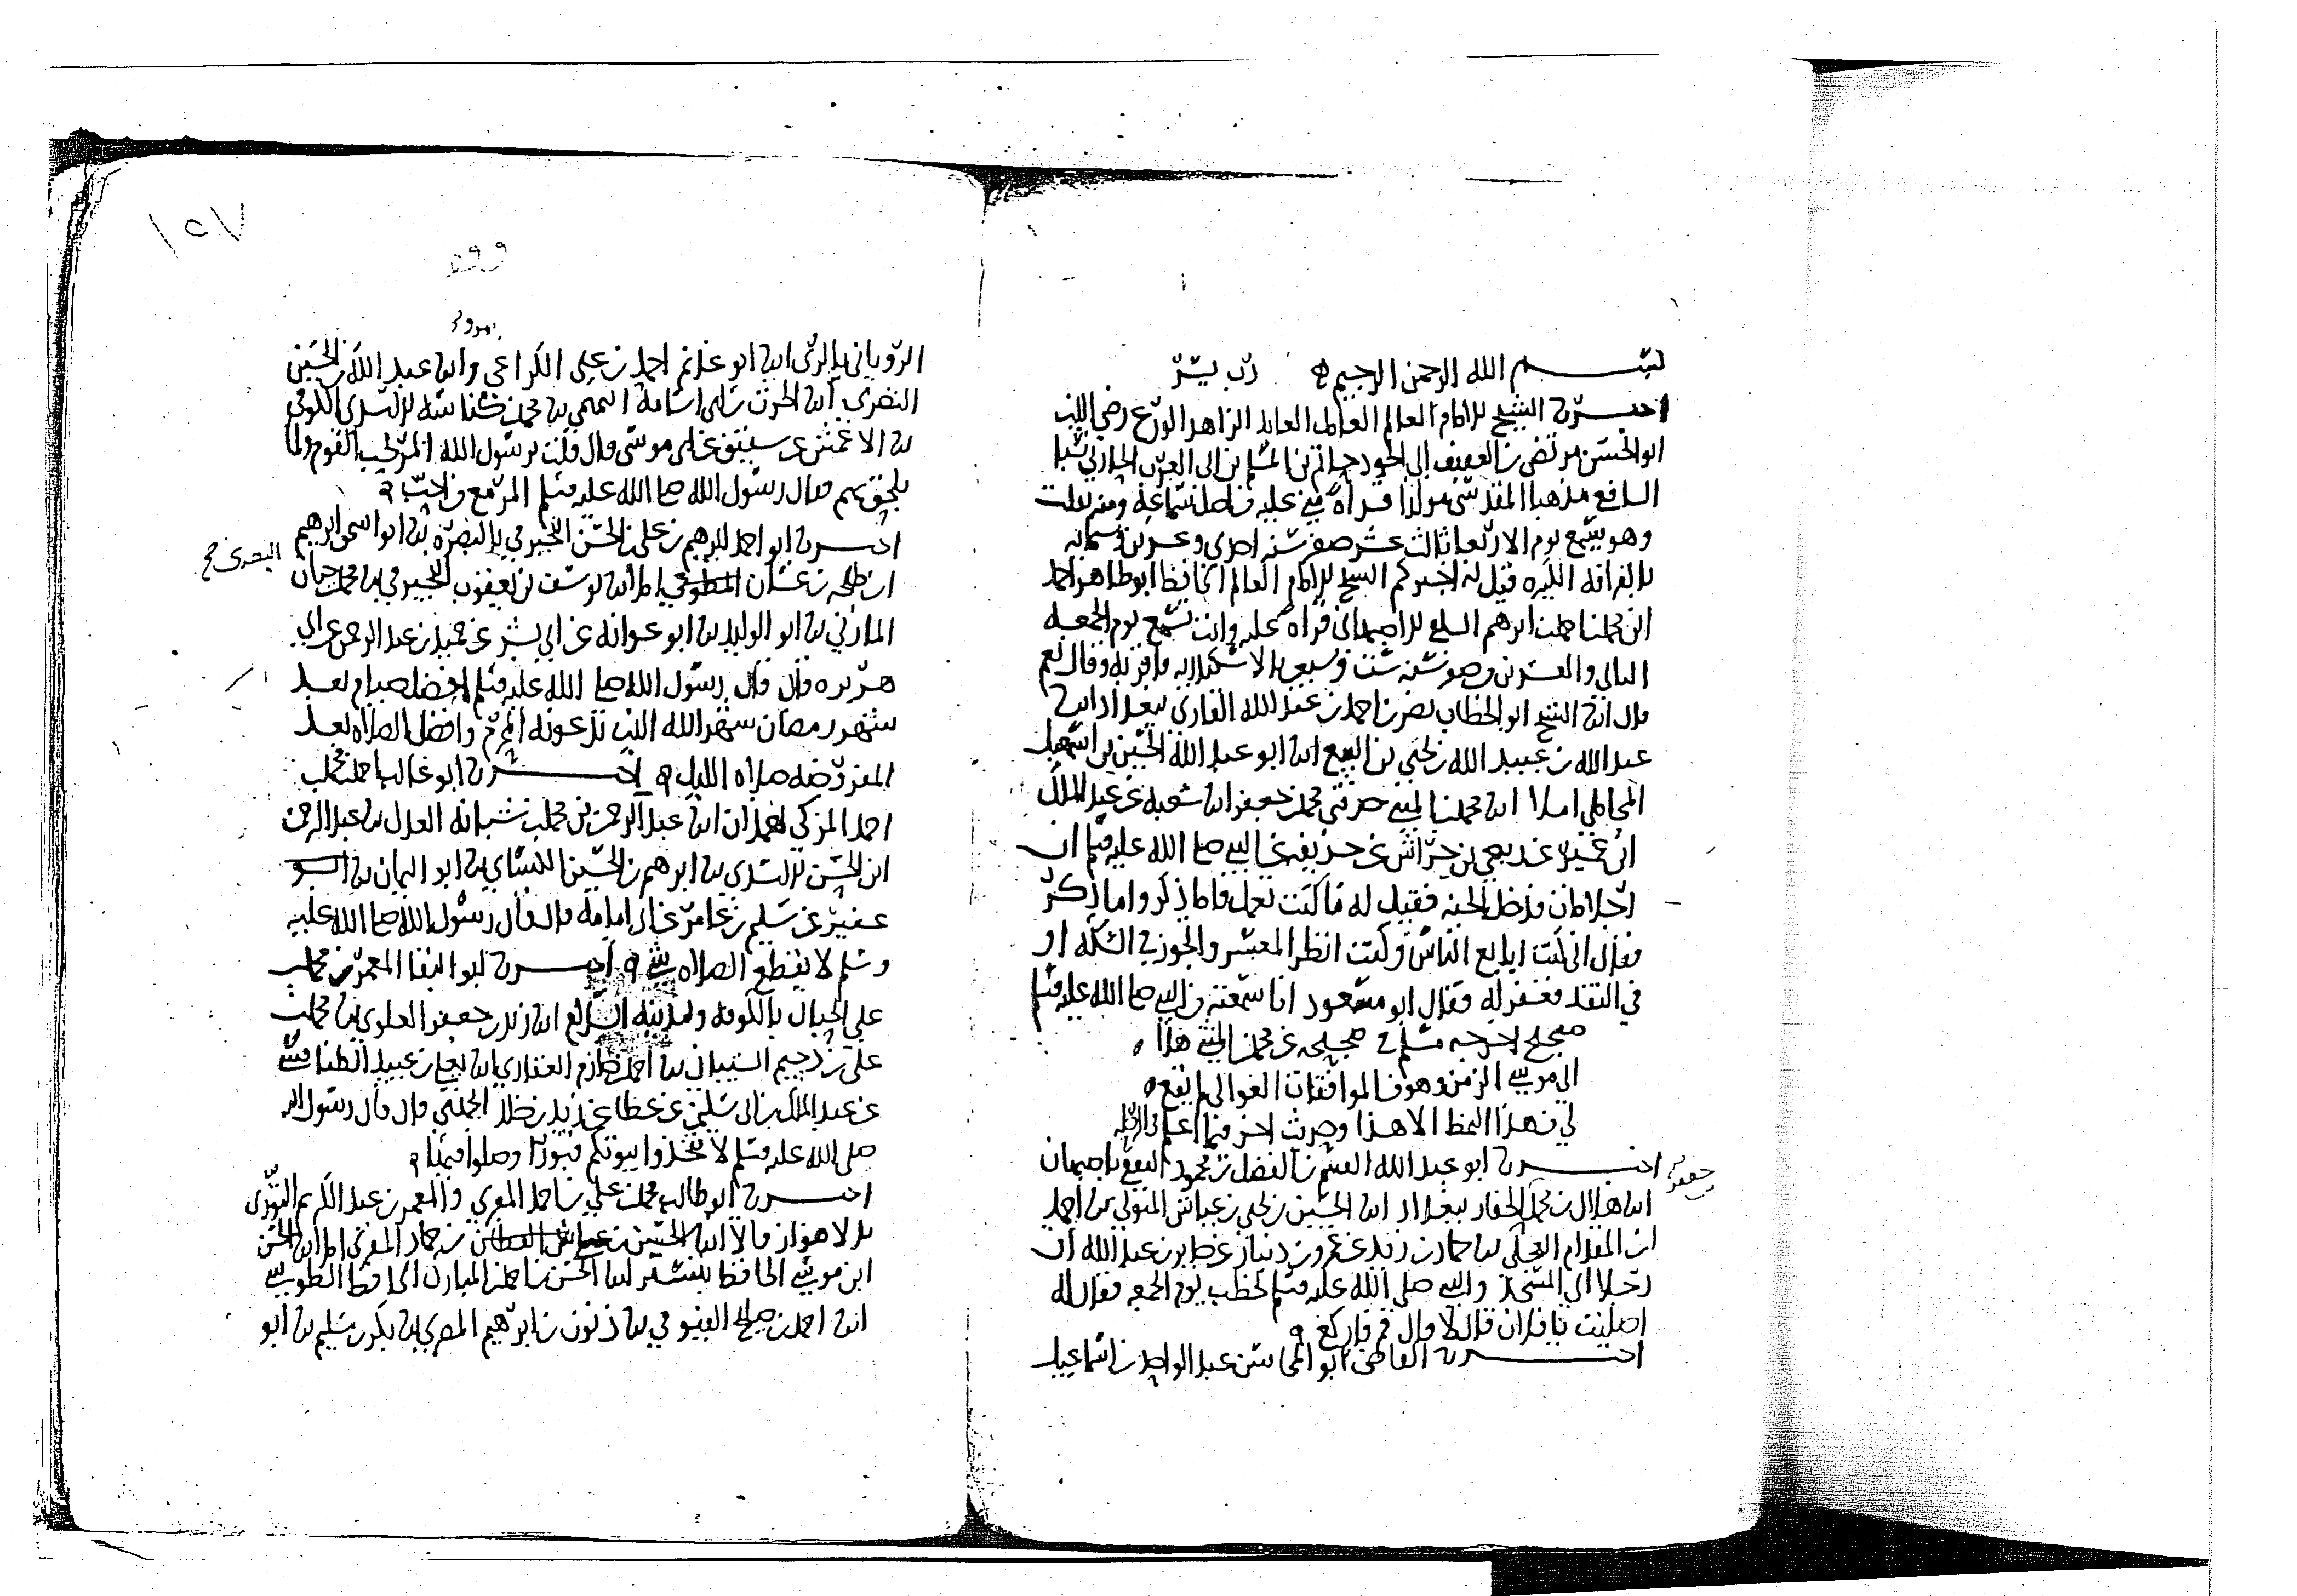 بسم الله الرحمن الرحيم رب يسر
اخبرنا الشيخ الامام العالم العامل العابد الزاهد الورع رضي الدين
ابو الحسن مرتضى بن العفيف ابي الجود حاتم بن المسلم بن ابي العرب الحارثي نسبا
الشافعي مذهبا المقدسي مولدا قراة مني عليه من اصل سماعه ومنه نقلت
وهو يسمع يوم الاربعا ثالث عشر صفر سنه احدي وعشرين وستمايه
بالقرافه الكبره قيل له اخبركم الشيخ الامام العالم الحافظ ابو طاهر احمد
ابن محمد بن احمد بن ابرهيم السلفي الاصبهاني قراة عليه وانت تسمع يوم الجمعه
الثاني والعشرين من صفر سنه ست وسبعين بالاسكندريه فاقر به وقال نعم
قال انا الشيخ ابو الخطاب نصر بن احمد بن عبد الله القاري ببغداد انا
عبد الله بن عبيد الله بن يحيى بن البيع انا ابو عبد الله الحسين بن اسمعيل
المحاملي املا انا محمد بن المثنى حدثني محمد بن جعفر انا شعبه عن عبد الملك
ابن عمير عن ربعي بن حراش عن حذيفه عن النبي صلى الله عليه وسلم ان
رجلا مات فدخل الجنه فقيل له ما كنت تعمل فاما ذكر واما ذكر
فقال اني كنت ابايع الناس وكنت انظر المعسر واتجوز في السكه او
في النقد فغفر له فقال ابو مسعود انا سمعته من النبي صلى الله عليه وسلم
صحيح اخرجه مسلم في صحيحه عن محمد بن المثنى هذا
ابي موسى الزمن وهو من الموافقات العوالي لم يقع
لي من هذا النمط الا هذا وحديث اخر فيما اعلم
اخبرنا ابو عبد الله القسم بن الفضل بن محمود الثقفي باصبهان
انا هلال بن محمد الحفار ببغداد انا الحسين بن يحيى بن عياش المتوثي نا احمد
ابن المقدام العجلي نا حماد بن زيد عن عمرو بن دينار عن جابر بن عبد الله ان
رجلا اتي المسجد والنبي صلى الله عليه وسلم يخطب يوم الجمعه فقال له
اصليت يا فلان قال لا قال قم فاركع
اخبرنا القاضي ابو المحاسن عبد الواحد بن اسماعيل
جعفر
١٥٧
الروياني بالري انا ابو غانم احمد بن علي الكراعي وانا عبد الله بن الحسين
النضري انا الحرث بن ابي اسامة التميمي نا محمد بن كناسه الاسدي الكوفي
نا الاعمش عن شقيق عن ابي موسى قال قلت يرسول الله المر يحب القوم ولما
يلحق بهم فقال رسول الله صلى الله عليه وسلم المر مع من احب
اخبرنا ابو احمد ابرهيم بن علي بن الحسن النجيرمي بالبصره نا ابو اسحق ابرهيم
ابن طلحه بن غسان املا نا يوسف بن يعقوب النجيرمي نا محمد بن حيان
المازني نا ابو الوليد نا ابو عوانه عن ابي بشر عن حميد بن عبد الرحمن عن ابي
هريره قال قال رسول الله صلى الله عليه وسلم افضل صيام بعد
شهر رمضان شهر الله الذي تدعونه المحرم وافضل الصلاه بعد
المفروضه صلاه الليل اخبرنا ابو غالب احمد بن محمد بن
احمد المزكي بهمدان انا عبد الرحمن بن محمد بن شبانه العدل نا عبد الرحمن
ابن الحسن الاسدي نا ابرهيم بن الحسين الكسائي نا ابو اليمان نا
عفير عن سليم بن عامر عن ابي امامه قال قال رسول الله صلى الله عليه
وسلم لا يقطع الصلاه شي اخبرنا ابو البقا المعمر بن محمد بن
علي الحبال بالكوفه انا زيد بن جعفر العلوي نا محمد بن
علي بن دحيم الشيباني نا احمد بن حازم الغفاري انا يعلى بن عبيد الطنافسي
عن عبد الملك بن ابي سليمن عن عطا عن زيد بن خالد الجهني قال قال رسول الله
صلى الله عليه وسلم لا تتخذوا بيوتكم قبورا وصلوا فيها
اخبرنا ابو طالب محمد بن علي بن احمد المقري والمعمر بن عبد الكريم التوزي
بالاهواز قالا انا الحسين بن حماد المقري املا انا الحسن
ابن موسى الحافظ بتستر نا الحسن بن احمد بن المبارك الحافظ الطوسي
انا احمد بن صليح الفيومي نا ذو نون بن ابرهيم المصري نا بكر بن سليم نا ابو
البصري صح